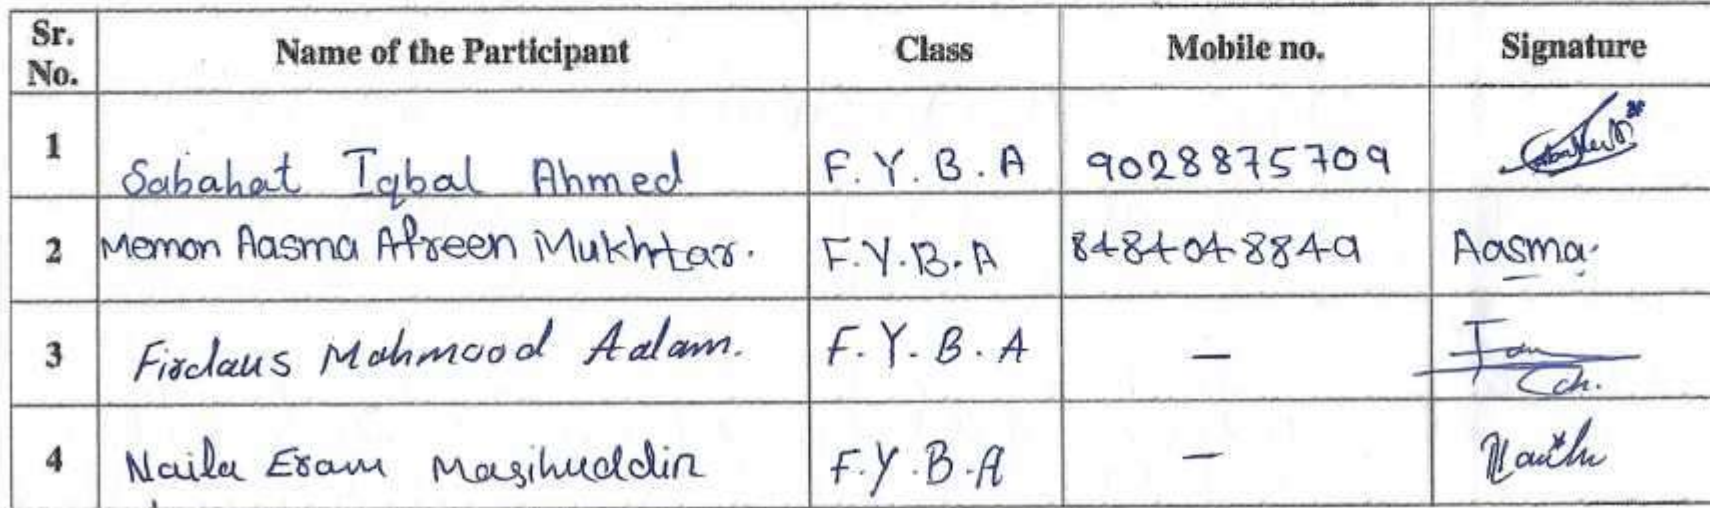 Sr. No. Name of the Participant Class Mobile no. Signature
1 Sabahat Iqbal Ahmed F.Y.B.A 9028875709
2 Memon Aasma Afreen Mukhtar. F.Y.B.A 8484048849 Aasma.
3 Firdaus Mahmood Aalam. F.Y.B.A —
4 Naila Eram Masihuddin F.Y.B.A —